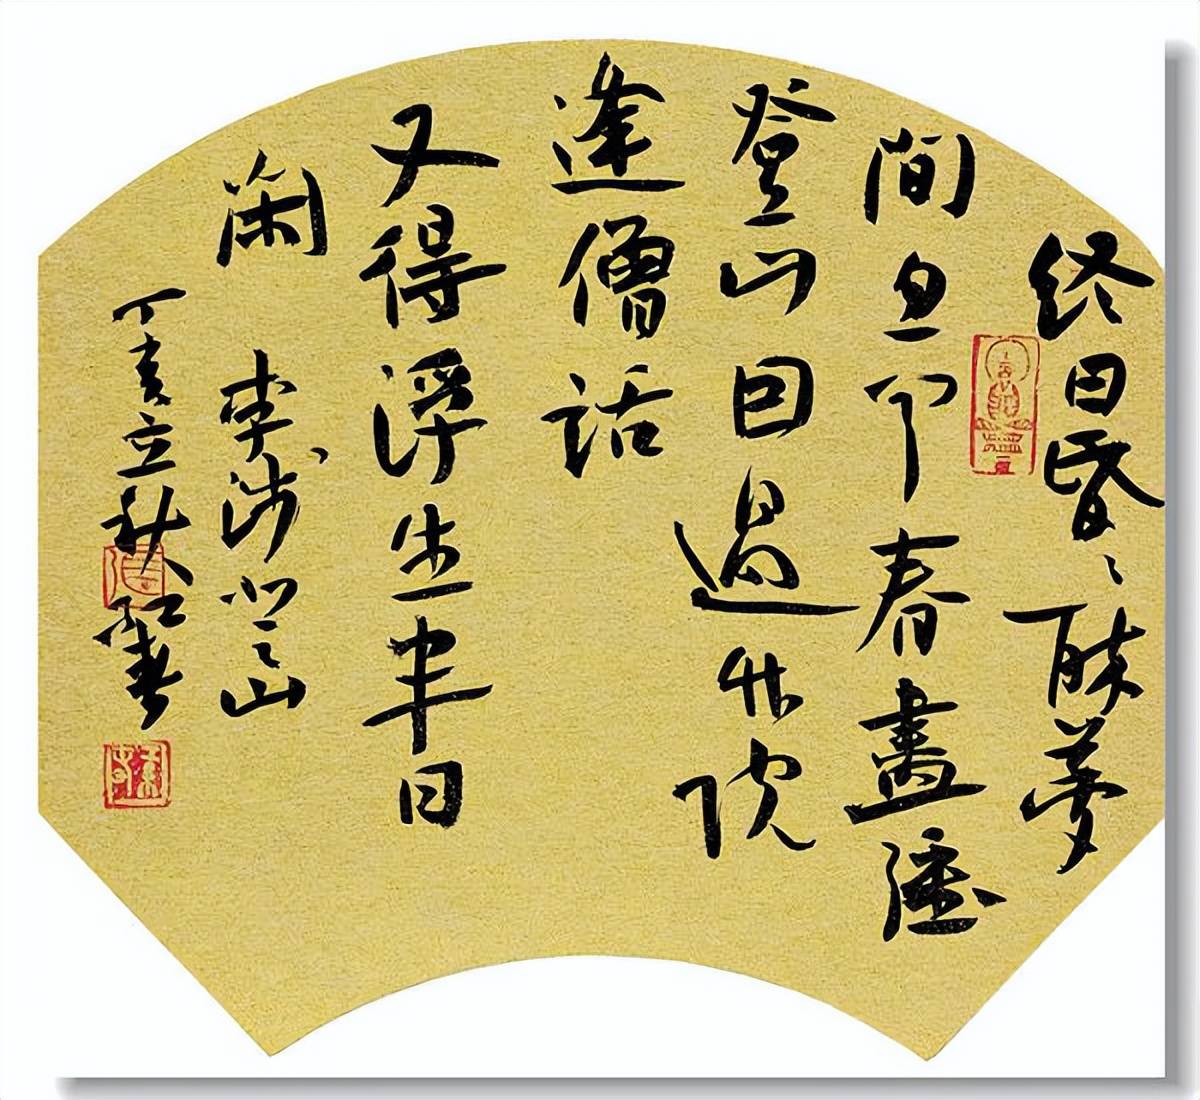 终日昏〻醉夢
間忽聞春盡强
登山因過竹院
逢僧話
又得浮生半日
闲 李涉登山
丁亥立秋 书